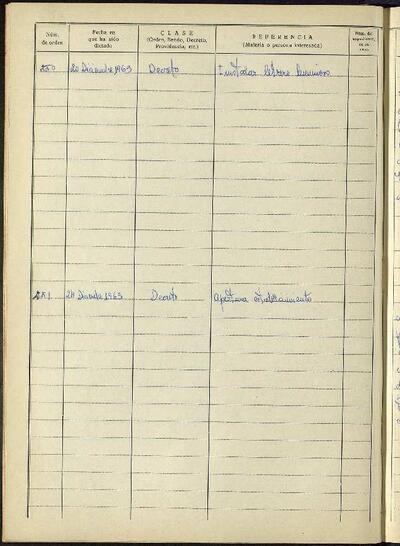 Núm. de orden
Fecha en que ha sido dictado
CLASE
(Orden, Bando, Decreto, Providencia, etc.)
REFERENCIA
(Materia o persona interesada)
Núm. de
20 Diciembre 1963 Decreto Instalar letrero luminoso
24 Diciembre 1963 Decreto Apertura establecimiento